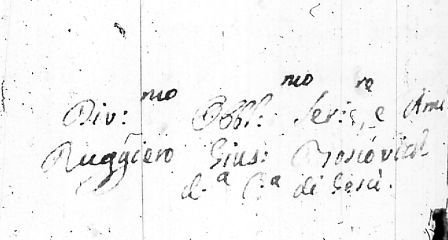 Div:mo Obbl:mo Ser:re, e Ami
Ruggiero Gius: Boscovich
d.a C.a di Gesù.